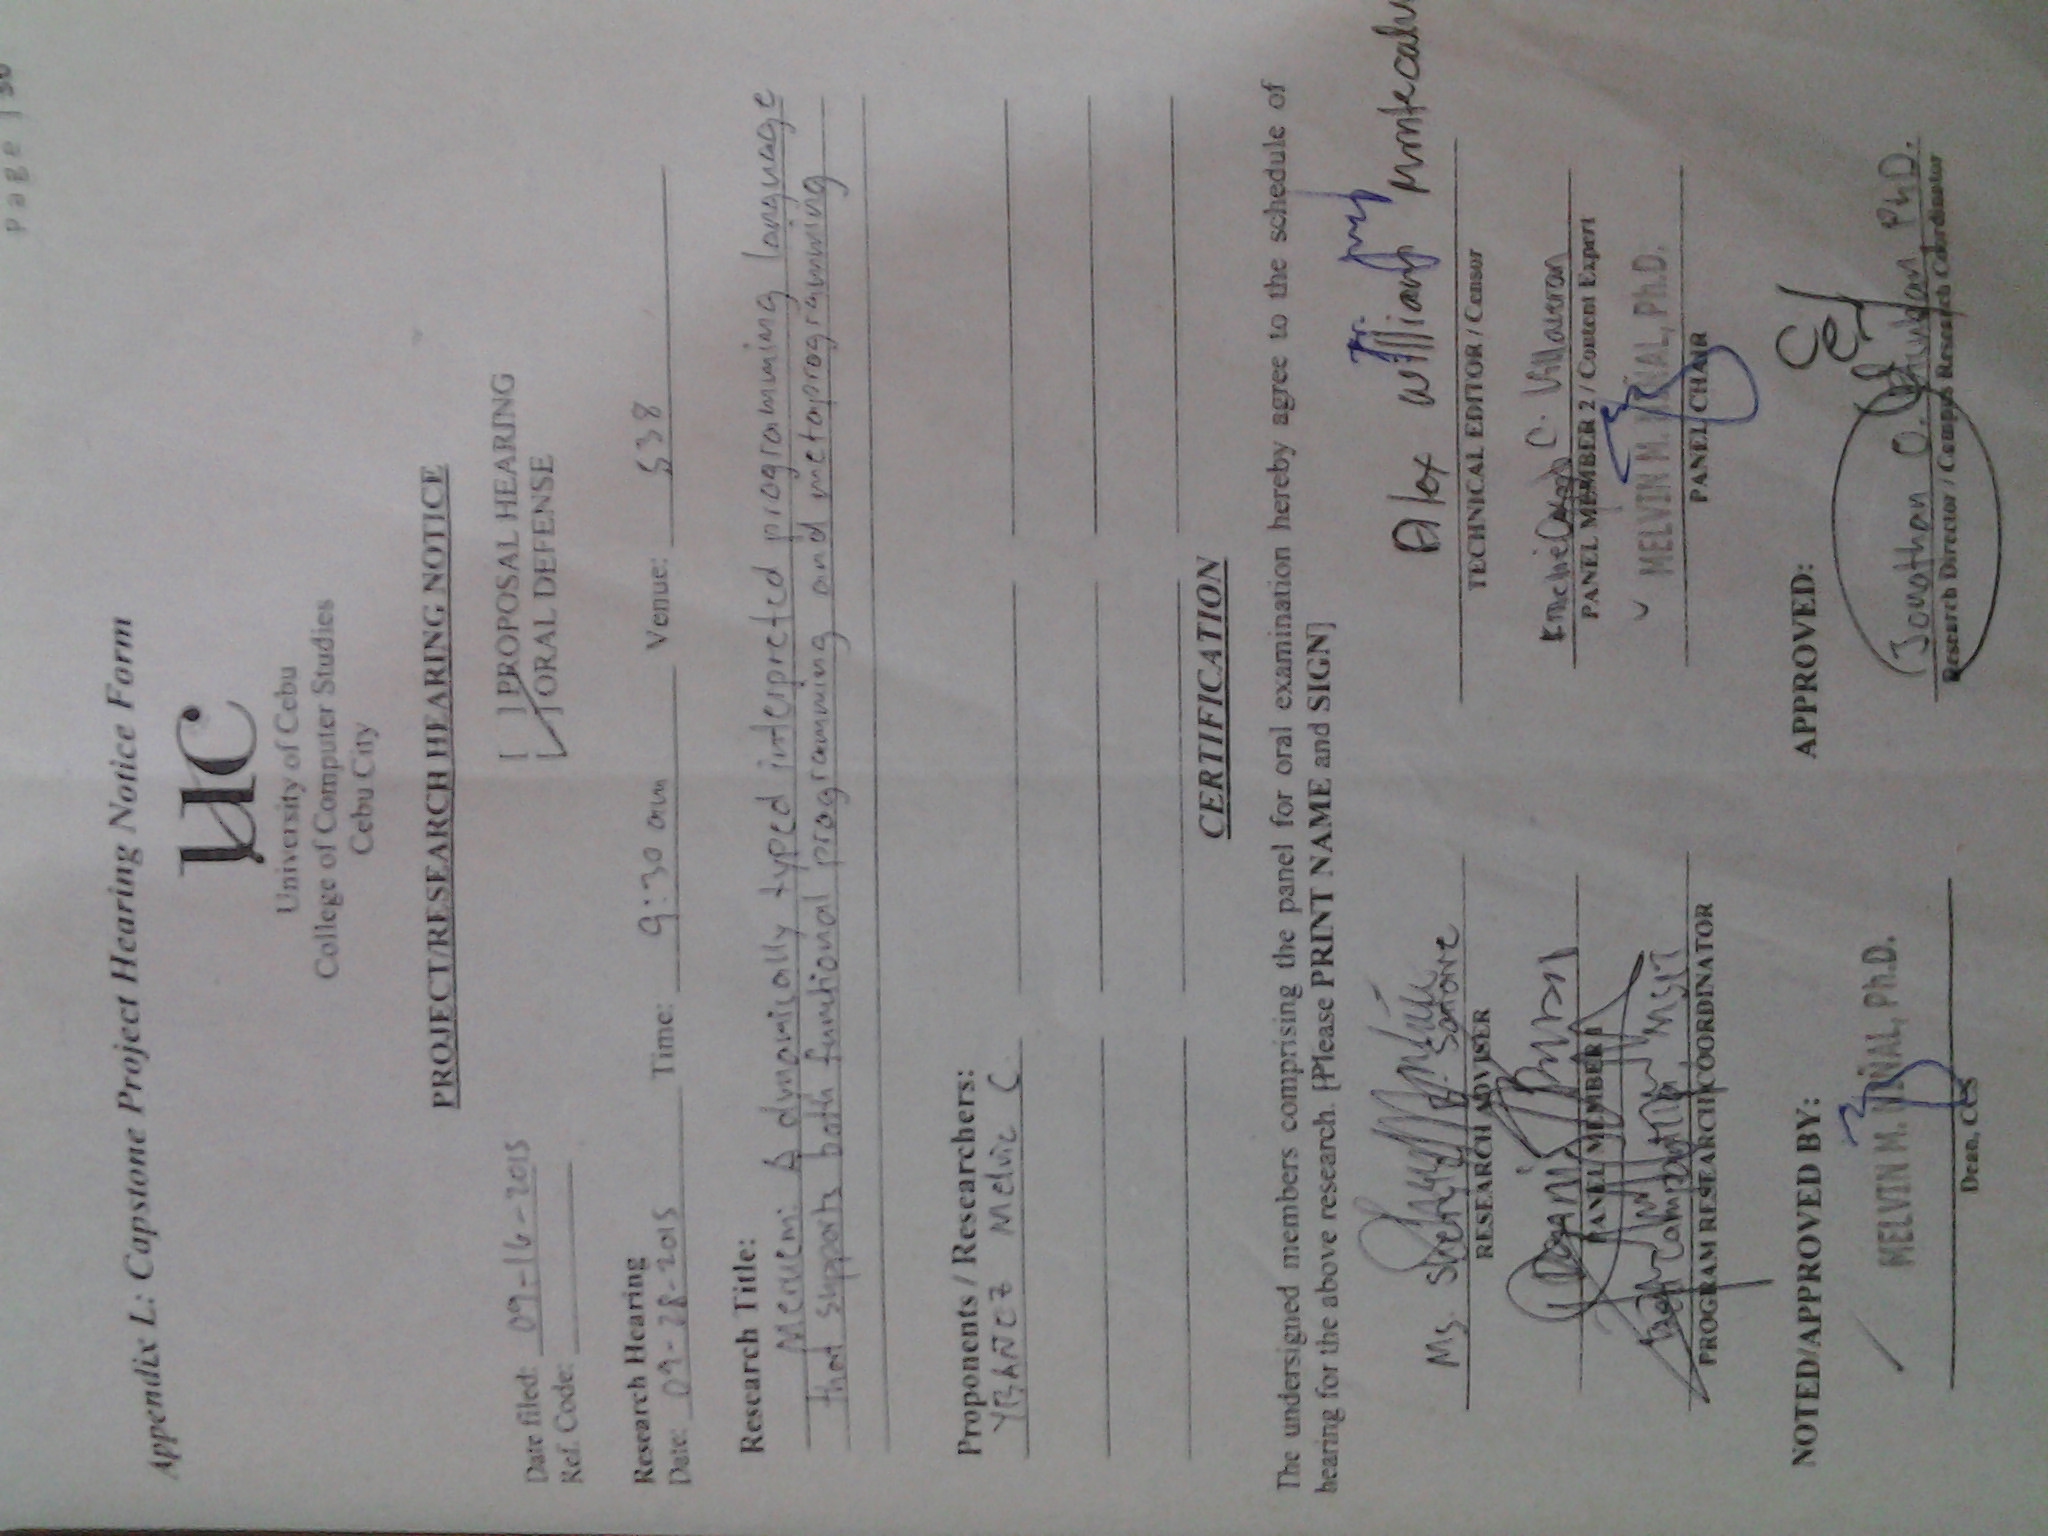 Page | 30
Appendix L: Capstone Project Hearing Notice Form
UC
University of Cebu
College of Computer Studies
Cebu City
PROJECT/RESEARCH HEARING NOTICE
Date filed: 09-16-2015 [ ] PROPOSAL HEARING
Ref. Code: [✓] ORAL DEFENSE
Research Hearing
Date: 09-28-2015 Time: 9:30 am Venue: 538
Research Title:
Meruem: A dynamically typed interpreted programming language
that supports both functional programming and metaprogramming
Proponents / Researchers:
YBAÑEZ Melvic C.
CERTIFICATION
The undersigned members comprising the panel for oral examination hereby agree to the schedule of
hearing for the above research. [Please PRINT NAME and SIGN]
Ms. Satorre Alex William Montecalv
RESEARCH ADVISER TECHNICAL EDITOR / Censor
Dennis C. Villaveran
PANEL MEMBER 1 PANEL MEMBER 2 / Content Expert
MSIT MELVIN M. NIÑAL, Ph.D.
PROGRAM RESEARCH COORDINATOR PANEL CHAIR
NOTED/APPROVED BY: APPROVED:
MELVIN M. NIÑAL, Ph.D. Jonathan O. PhD.
Dean, CCS Research Director / Campus Research Coordinator